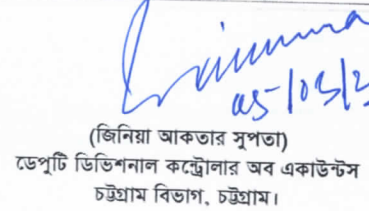 05/03/2
(জিনিয়া আকতার সুপতা)
ডেপুটি ডিভিশনাল কন্ট্রোলার অব একাউন্টস
চট্টগ্রাম বিভাগ, চট্টগ্রাম।